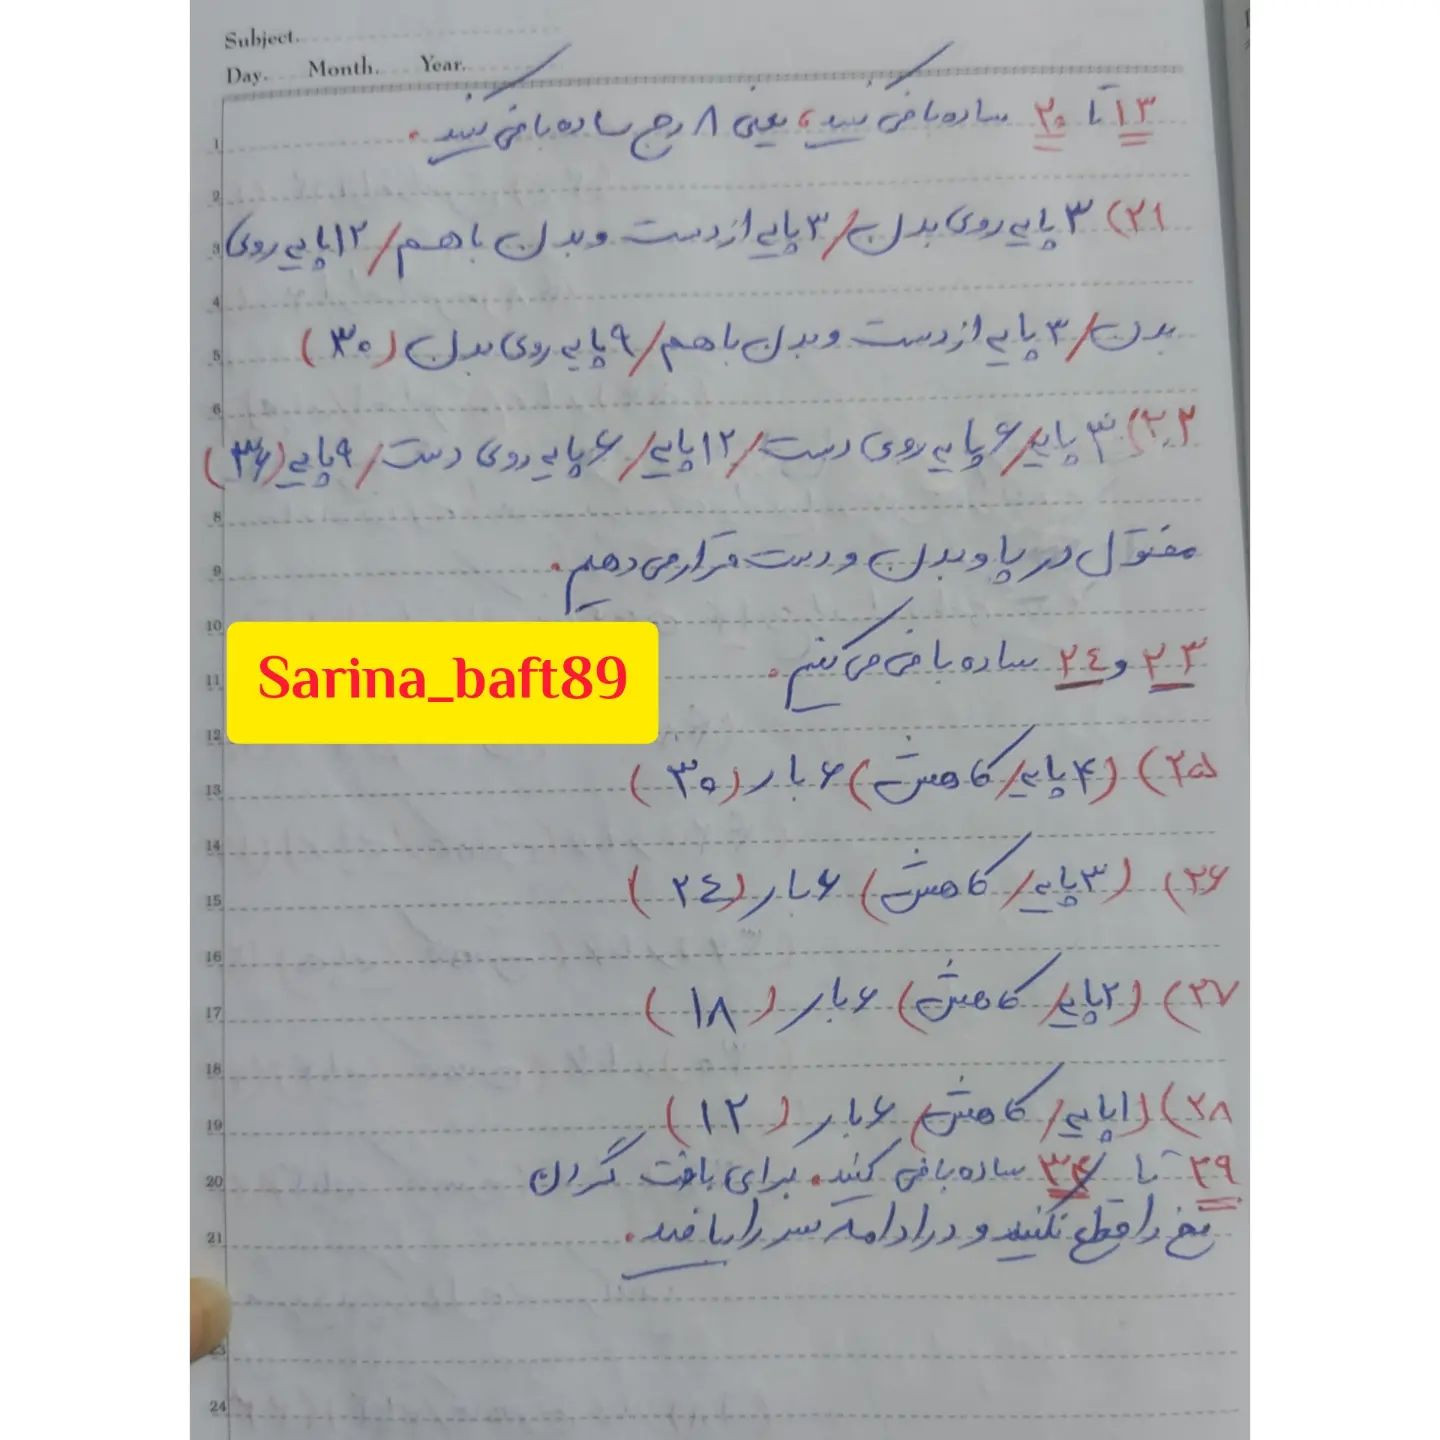 Subject.
Day. Month. Year.
۱۳ تا ۲۰ ساده بافی کنید، یعنی ۸ رج ساده بافی کنید.
۲۱) ۳ پایه روی بدن / ۳ پایه از دست و بدن با هم / ۱۲ پایه روی
بدن / ۳ پایه از دست و بدن با هم / ۹ پایه روی بدن (۳۰)
۲۲) ۳ پایه / ۶ پایه روی دست / ۱۲ پایه / ۶ پایه روی دست / ۹ پایه (۳۶)
مفتول در پا و بدن و دست قرار می دهیم.
۲۳ و ۲۴ ساده بافی می کنیم.
Sarina_baft89
۲۵) (۴ پایه / کاهش) ۶ بار (۳۰)
۲۶) (۳ پایه / کاهش) ۶ بار (۲۴)
۲۷) (۲ پایه / کاهش) ۶ بار (۱۸)
۲۸) (۱ پایه / کاهش) ۶ بار (۱۲)
۲۹ تا ۳۴ ساده بافی کنید. برای بافت گردن
نخ را قطع نکنید و در ادامه سر را ببافید.
1
2
3
4
5
6
8
9
10
11
12
13
14
15
16
17
18
19
20
21
23
24